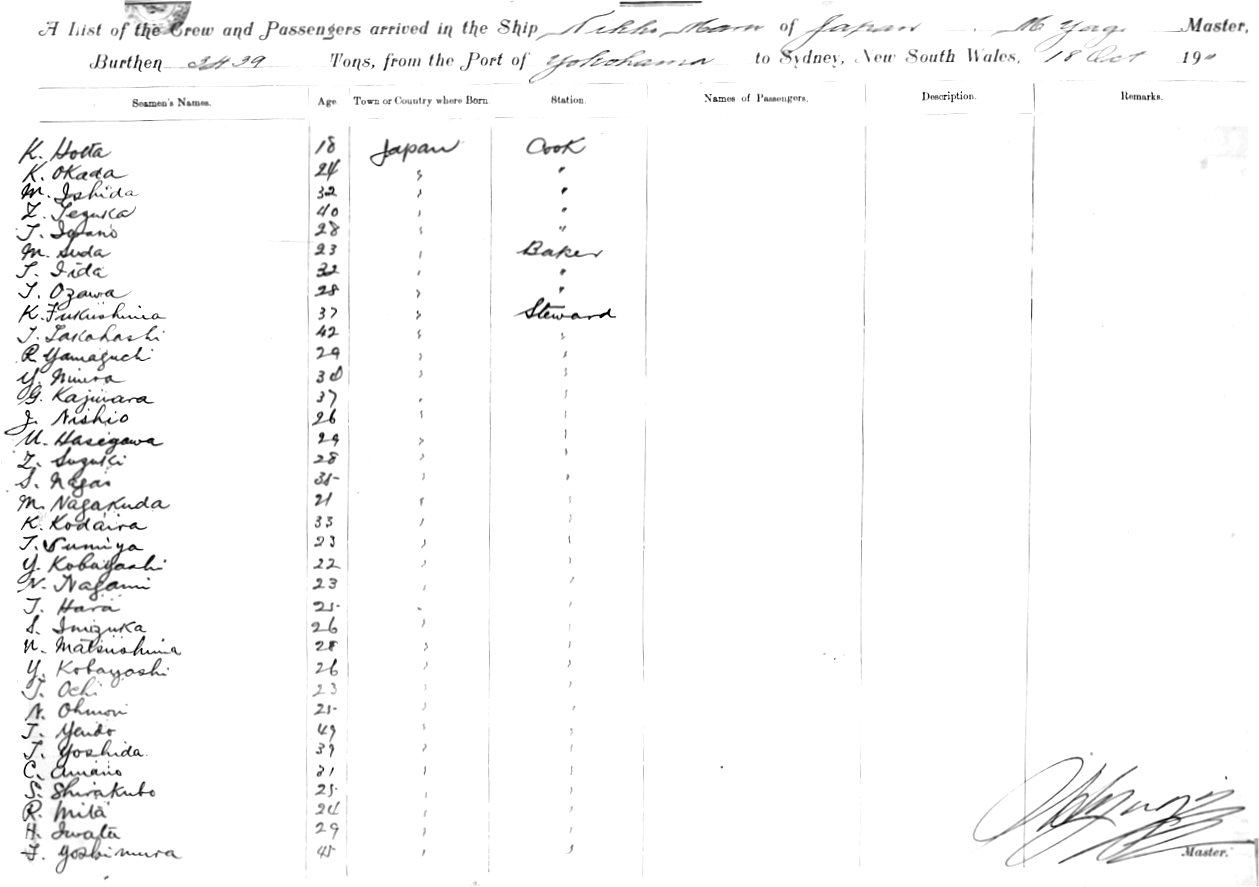 A List of the Crew and Passengers arrived in the Ship Nikko Maru of Japan M Yagi Master,
Burthen 3439 Tons, from the Port of Yokohama to Sydney, New South Wales, 18 Oct 190
Seamen's Names. Age Town or Country where Born Station. Names of Passengers. Description. Remarks.
K. Hotta 18 Japan Cook
K. Okada 24 " "
M. Ishida 32 " "
Z. Tezuka 40 " "
T. 28 " "
M. Suda 23 " Baker
T. Iida 32 " "
T. Ozawa 28 " "
K. Fukushima 37 " Steward
T. Takahashi 42 " "
R. Yamaguchi 29 " "
Y. Miura 30 " "
G. Kajiwara 37 " "
J. Nishio 26 " "
U. Hasegawa 29 " "
Z. Suzuki 28 " "
S. Nagai 35 " "
M. Nagakuda 21 " "
K. Kodaira 33 " "
T. Sumiya 23 " "
Y. Kobayashi 22 " "
N. Nagami 23 " "
T. Hara 25 " "
S. Imizuka 26 " "
N. Matsushima 28 " "
Y. Kobayoshi 26 " "
T. Ochi 23 " "
N. Ohmori 25 " "
T. Yendo 49 " "
T. Yoshida 39 " "
C. Amano 21 " "
S. Shirakubo 25 " "
R. Mita 24 " "
H. Iwata 29 " "
T. Yoshimura 45 " "
Master.